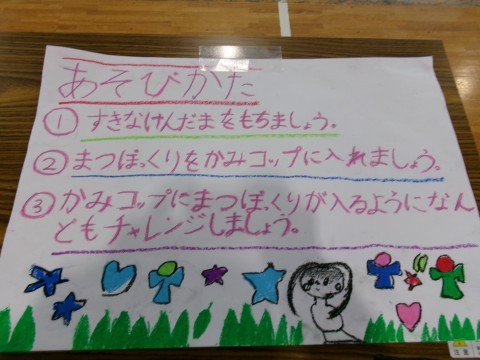 あそびかた
① すきなけんだまをもちましょう。
② まつぼっくりをかみコップに入れましょう。
③ かみコップにまつぼっくりが入るようになん
どもチャレンジしましょう。
注意